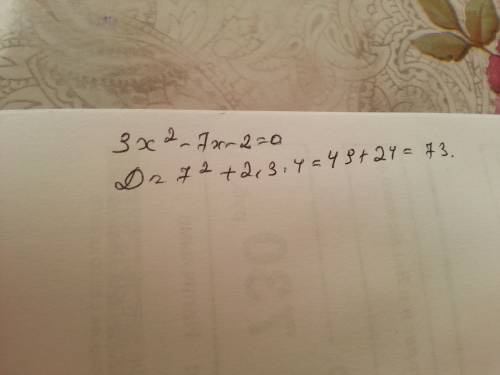 3x² - 7x - 2 = 0
D = 7² + 2·3·4 = 49 + 24 = 73.